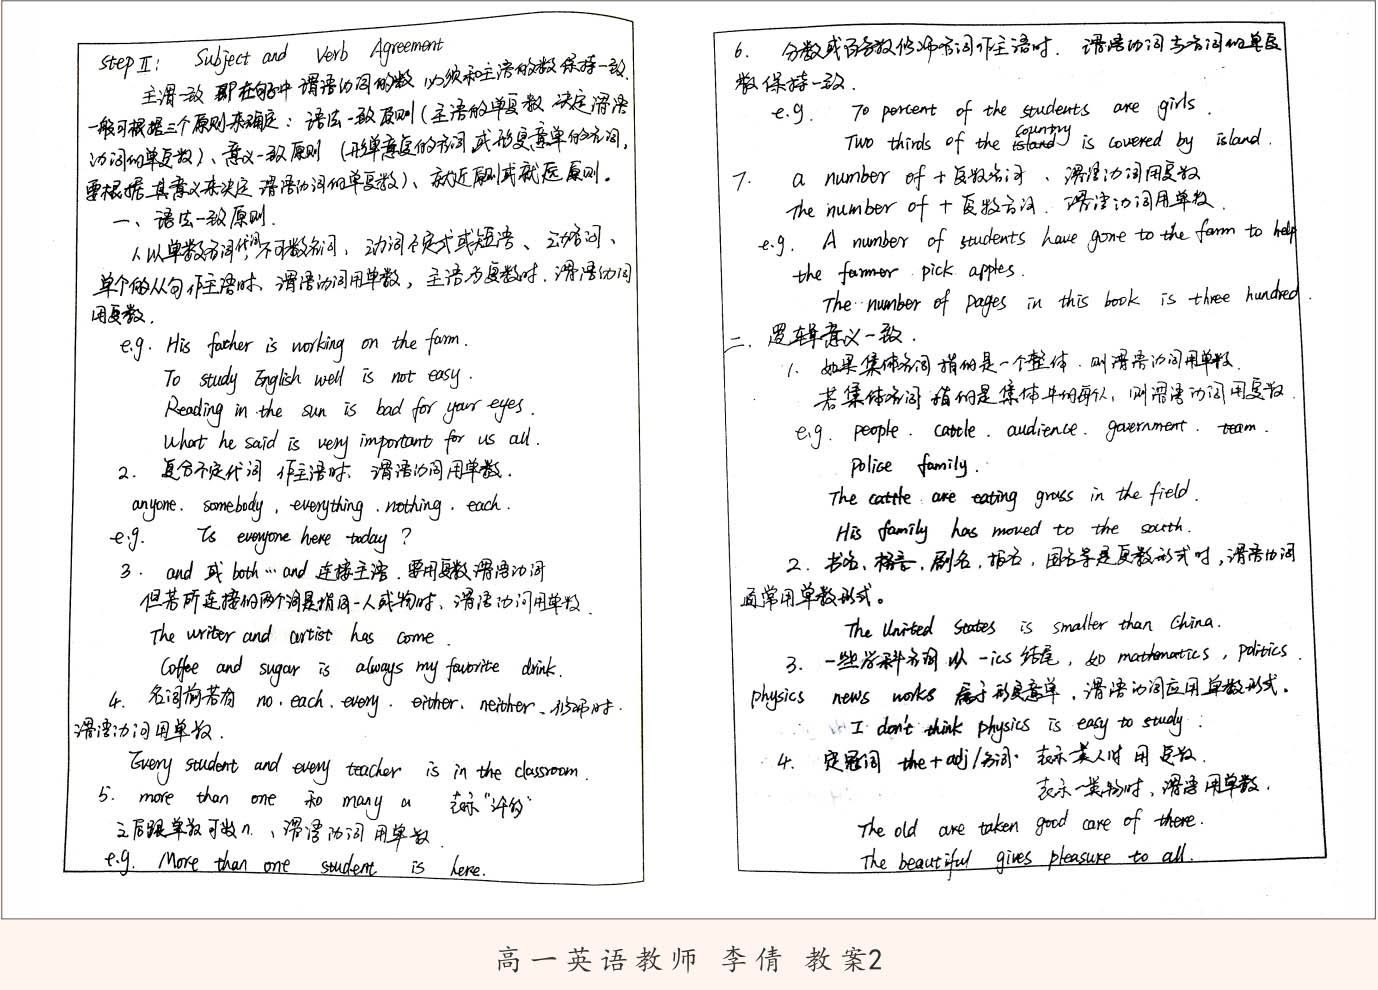 Step II: Subject and Verb Agreement
主谓一致 即在句中 谓语动词的数 必须和主语的数保持一致.
一般可根据三个原则来确定：语法一致原则（主语的单复数 决定谓语
动词的单复数）、意义一致原则（形单意复的名词 或形复意单的名词，
要根据其意义来决定 谓语动词的单复数）、就近原则或就远原则。
一、语法一致原则.
1. 以单数名词代词，不可数名词、动词不定式或短语、动名词、
单个的从句作主语时、谓语动词用单数，主语为复数时.谓语动词
用复数.
e.g. His father is working on the farm.
To study English well is not easy.
Reading in the sun is bad for your eyes.
What he said is very important for us all.
2. 复合不定代词 作主语时、谓语动词用单数.
anyone. somebody, everything. nothing. each.
e.g. Is everyone here today?
3. and 或 both…and 连接主语.要用复数谓语动词
但若所连接的两个词是指同一人或物时、谓语动词用单数.
The writer and artist has come.
Coffee and sugar is always my favorite drink.
4. 名词前若有 no. each. every. either. neither、修饰时.
谓语动词用单数.
Every student and every teacher is in the classroom.
5. more than one 和 many a 表示“许多”
之后跟单数可数n、谓语动词用单数.
e.g. More than one student is here.
6. 分数或百分数修饰名词作主语时.谓语动词与名词的单复
数保持一致.
e.g. 70 percent of the students are girls.
country
Two thirds of the island is covered by island.
7. a number of + 复数名词、谓语动词用复数
the number of + 复数名词.谓语动词用单数.
e.g. A number of students have gone to the farm to help
the farmer pick apples.
The number of pages in this book is three hundred.
二. 逻辑意义一致.
1. 如果集体名词指的是一个整体.则谓语动词用单数.
若集体名词指的是集体中的每个人，则谓语动词用复数.
e.g. people. cattle. audience. government. team.
police family.
The cattle are eating grass in the field.
His family has moved to the south.
2. 书名、格言、剧名、报名，国名等是复数形式时，谓语动词
通常用单数形式。
The United States is smaller than China.
3. 一些学科名词以 -ics 结尾，如 mathematics, politics.
physics news works 属于形复意单.谓语动词应用单数形式。
I don't think physics is easy to study.
4. 定冠词 the + adj/名词.表示类人时用复数.
表示一类物时、谓语用单数.
The old are taken good care of there.
The beautiful gives pleasure to all.
高一英语教师 李倩 教案2